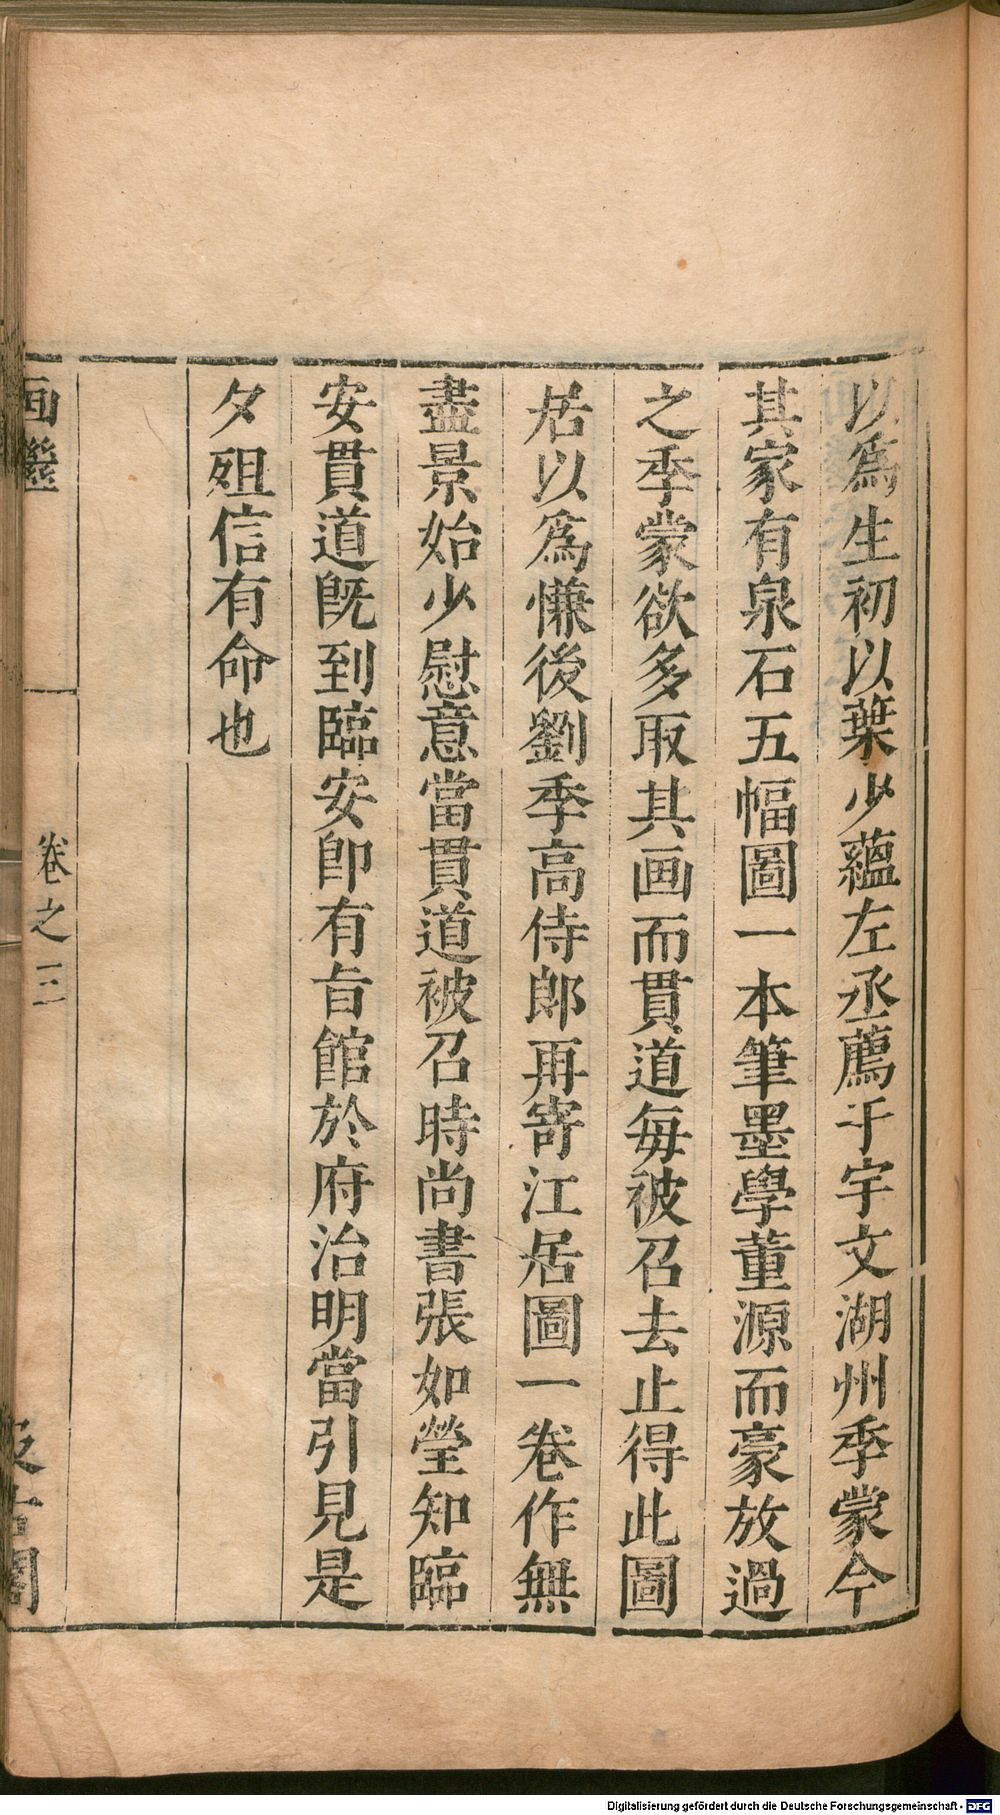 以爲生初以葉少蘊左丞薦于宇文湖州季蒙今
其家有泉石五幅圖一本筆墨學董源而豪放過
之季蒙欲多取其画而貫道每被召去止得此圖
居以爲慊後劉季高侍郎再寄江居圖一卷作無
盡景始少慰意當貫道被召時尚書張如瑩知臨
安貫道旣到臨安卽有旨館於府治明當引見是
夕殂信有命也
画繼
卷之三
汲古閣
Digitalisierung gefördert durch die Deutsche Forschungsgemeinschaft - DFG